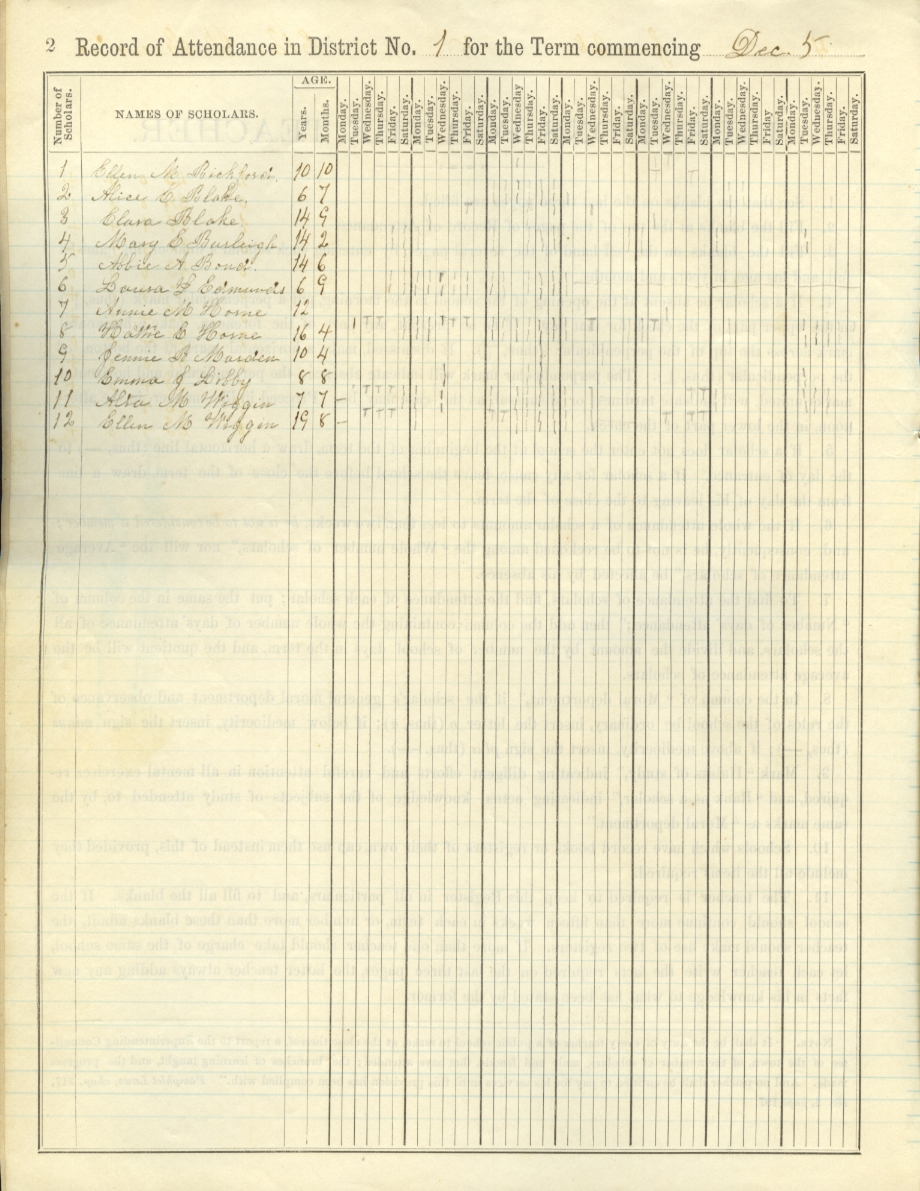 2 Record of Attendance in District No. 1 for the Term commencing Dec. 5
Number of Scholars. NAMES OF SCHOLARS. AGE. Years. Months. Monday. Tuesday. Wednesday. Thursday. Friday. Saturday. Monday. Tuesday. Wednesday. Thursday. Friday. Saturday. Monday. Tuesday. Wednesday. Thursday. Friday. Saturday. Monday. Tuesday. Wednesday. Thursday. Friday. Saturday. Monday. Tuesday. Wednesday. Thursday. Friday. Saturday. Monday. Tuesday. Wednesday. Thursday. Friday. Saturday. Monday. Tuesday. Wednesday. Thursday. Friday. Saturday.
1 Ellen M 10 10
2 Alice E Blake 6 7
3 Clara Blake 14 9
4 Mary E Burleigh 14 2
5 Abbie A Bond. 14 6
6 Louisa Edmunds 6 9
7 Annie M Horne 12
8 Hattie E Horne 16 4
9 Jennie R Marden 10 4
10 Emma J Libby 8 8
11 Alva M Wiggin 7 7
12 Ellen M Wiggin 19 8